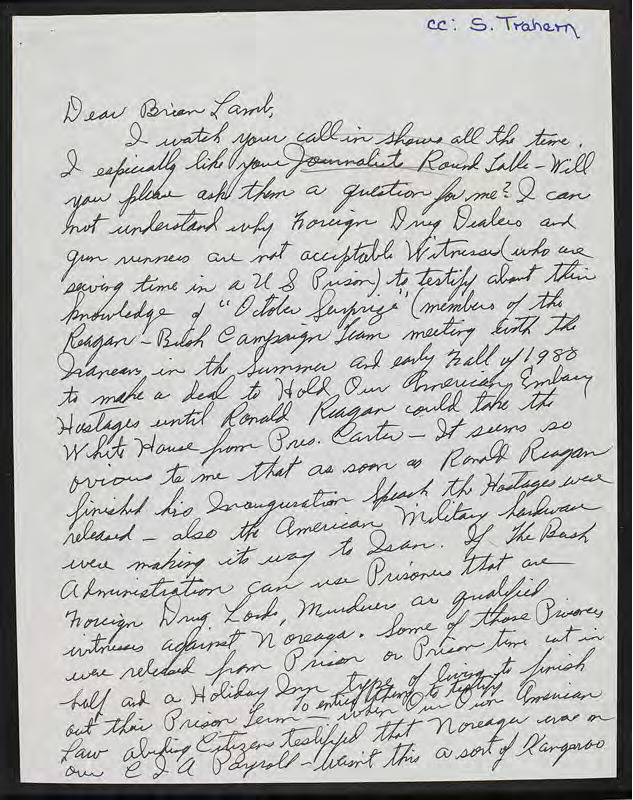 cc: S. Trahern
Dear Brian Lamb,
I watch your call in shows all the time.
I especially like your Journalists Round Table - Will
you please ask them a question for me? I can
not understand why Foreign Drug Dealers and
gun runners are not acceptable Witnesses (who are
serving time in a U S Prison) to testify about their
knowledge of "October Surprize" (members of the
Reagan - Bush Campaign Team meeting with the
Iraneans in the Summer and early Fall of 1980
to make a deal to Hold Our American Embassy
Hostages until Ronald Reagan could take the
White House from Pres. Carter - It seems so
ovious to me that as soon as Ronald Reagan
finished his Inauguration Speach the Hostages were
released - also the American Military hardware
were making its way to Iran. If The Bush
Administration can use Prisoners that are
Foreign Drug Lords, Murders as qualified
witnesses against Noreaga. Some of those Prisoners
were released from Prison or Prison time cut in
half and a Holiday Inn type of living to finish
out their Prison Term - to entice them to testify
when Our Own American
Law abiding Citizen testified that Noreaga was on
our C I A Payroll - wasn't this a sort of Kangaroo